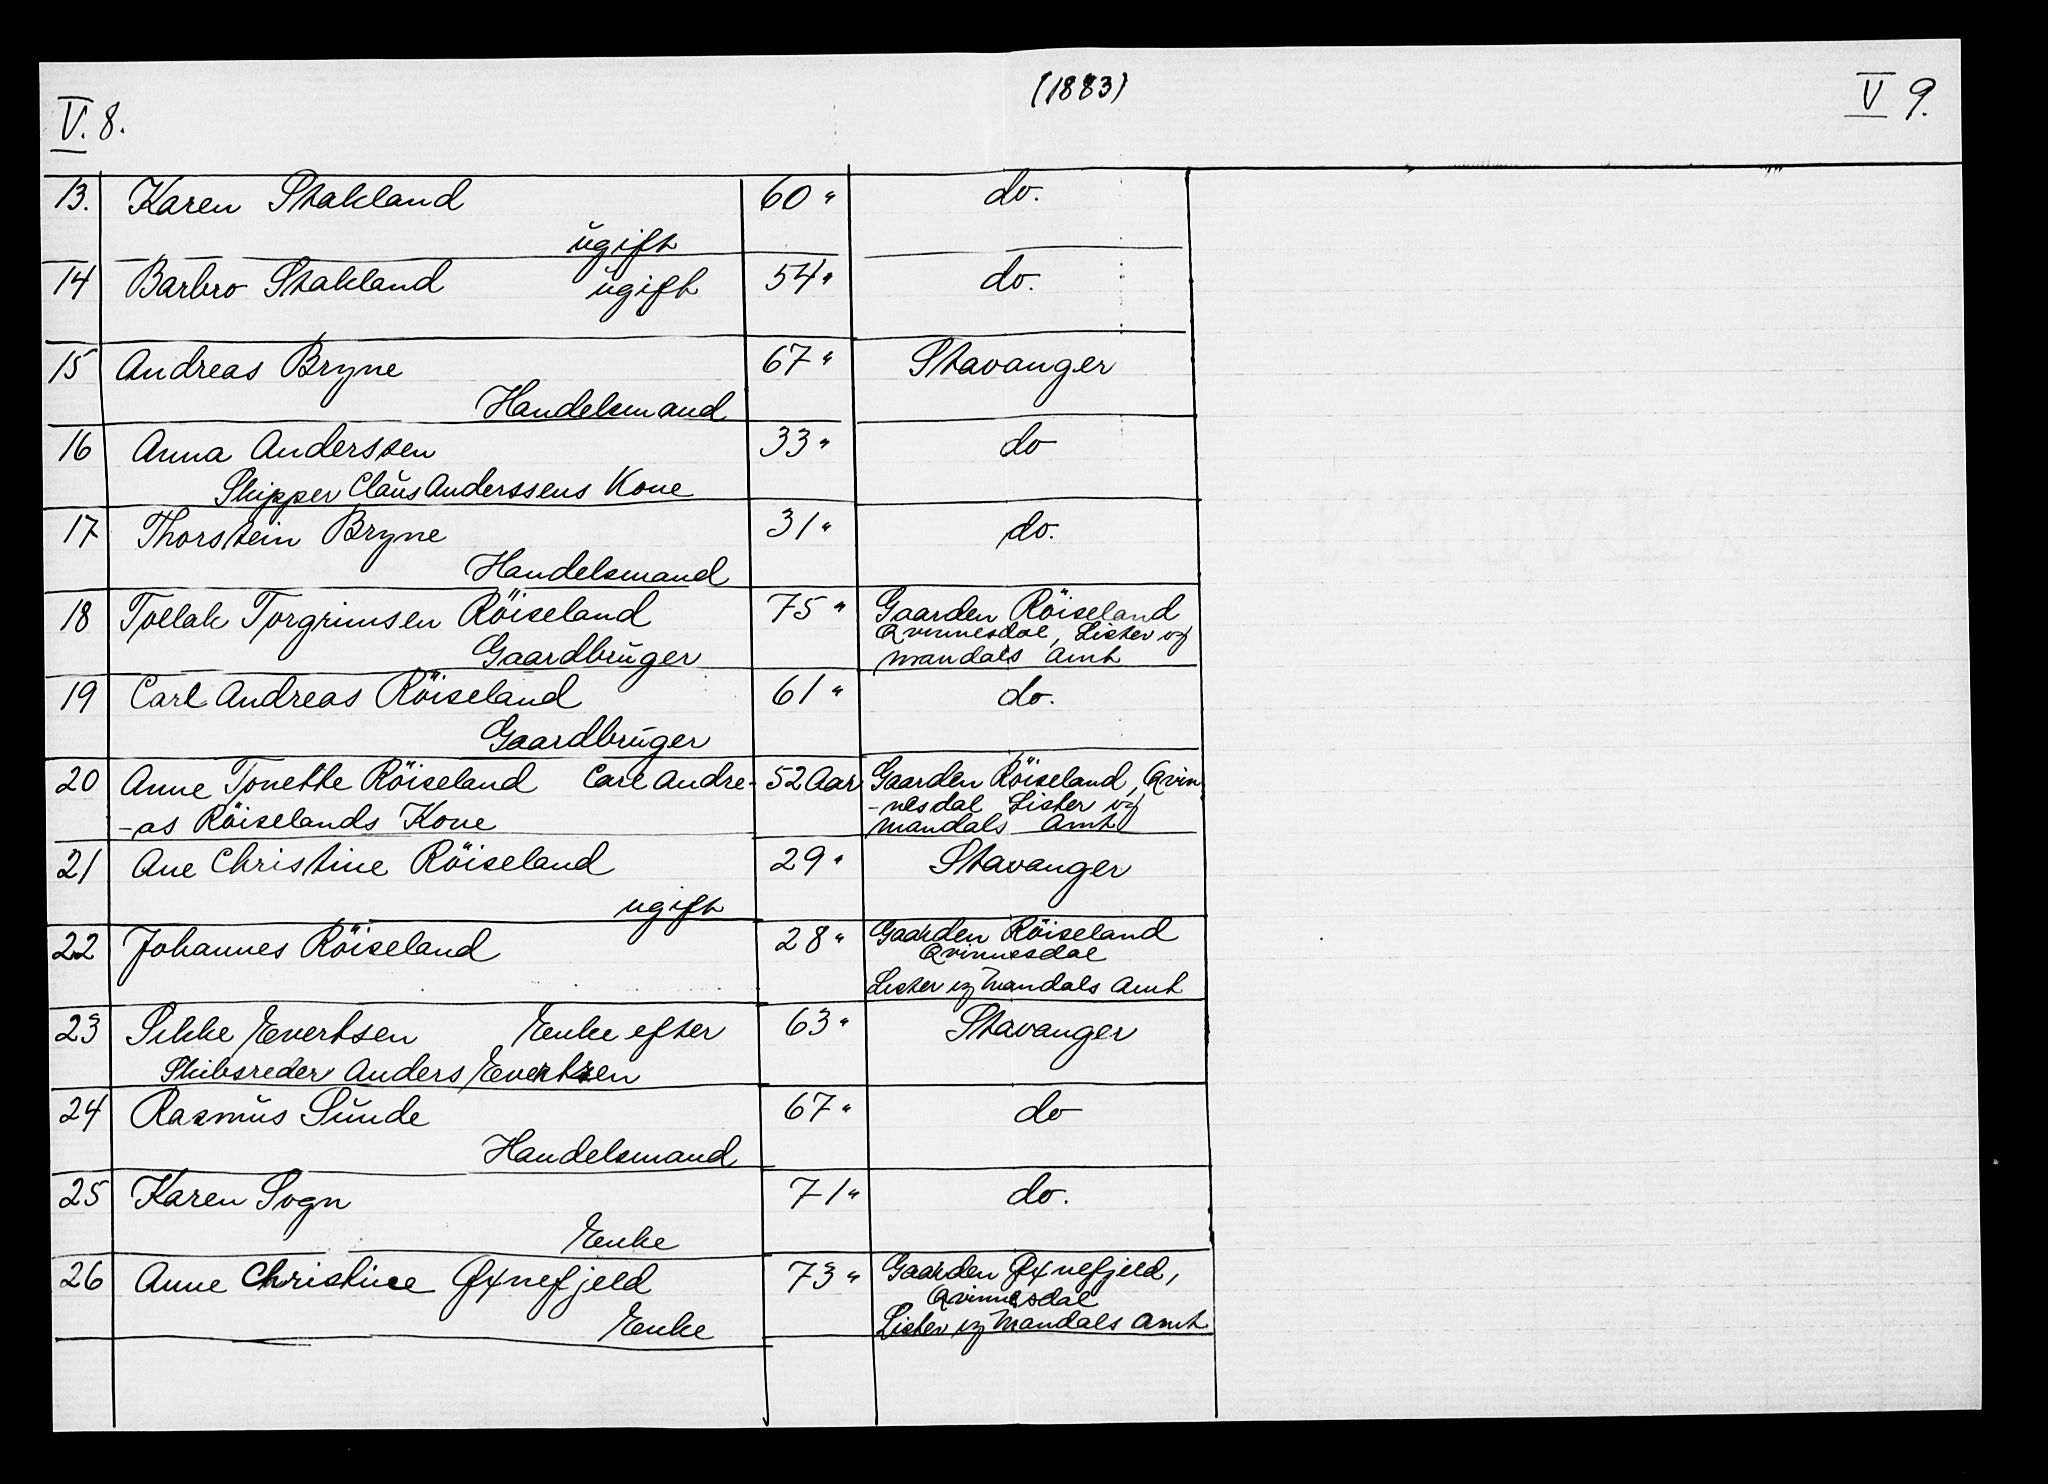 (1883)
V. 8.
V 9.
13. Karen Stakland 60 " do.
ugift
14 Barbro Stakland ugift 54 " do.
15 Andreas Bryne 67 " Stavanger
Handelsmand
16 Anna Anderssen 33 " do
Skipper Claus Anderssens Kone
17 Thorstein Bryne 31 " do.
Handelsmand
18 Tollak Torgrimsen Röiseland 75 " Gaarden Röiseland
Qvinnesdal, Lister og
Gaardbruger Mandals Amt
19 Carl Andreas Röiseland 61 " do.
Gaardbruger
20 Anne Tonette Röiseland Carl Andre- 52 Aar Gaarden Röiseland, Qvin
-nesdal Lister og
-as Röiselands Kone Mandals Amt
21 Ane Christine Röiseland 29 " Stavanger
ugift
22 Johannes Röiseland 28 " Gaarden Röiseland
Qvinnesdal
Lister og Mandals Amt
23 Sikke Evertsen Enke efter 63 " Stavanger
Skibsreder Anders Evertsen
24 Rasmus Sunde 67 " do
Handelsmand
25 Karen Sogn 71 " do.
Enke
26 Anne Christine Øxnefjeld 73 " Gaarden Øxnefjeld,
Qvinnesdal
Enke Lister og Mandals Amt